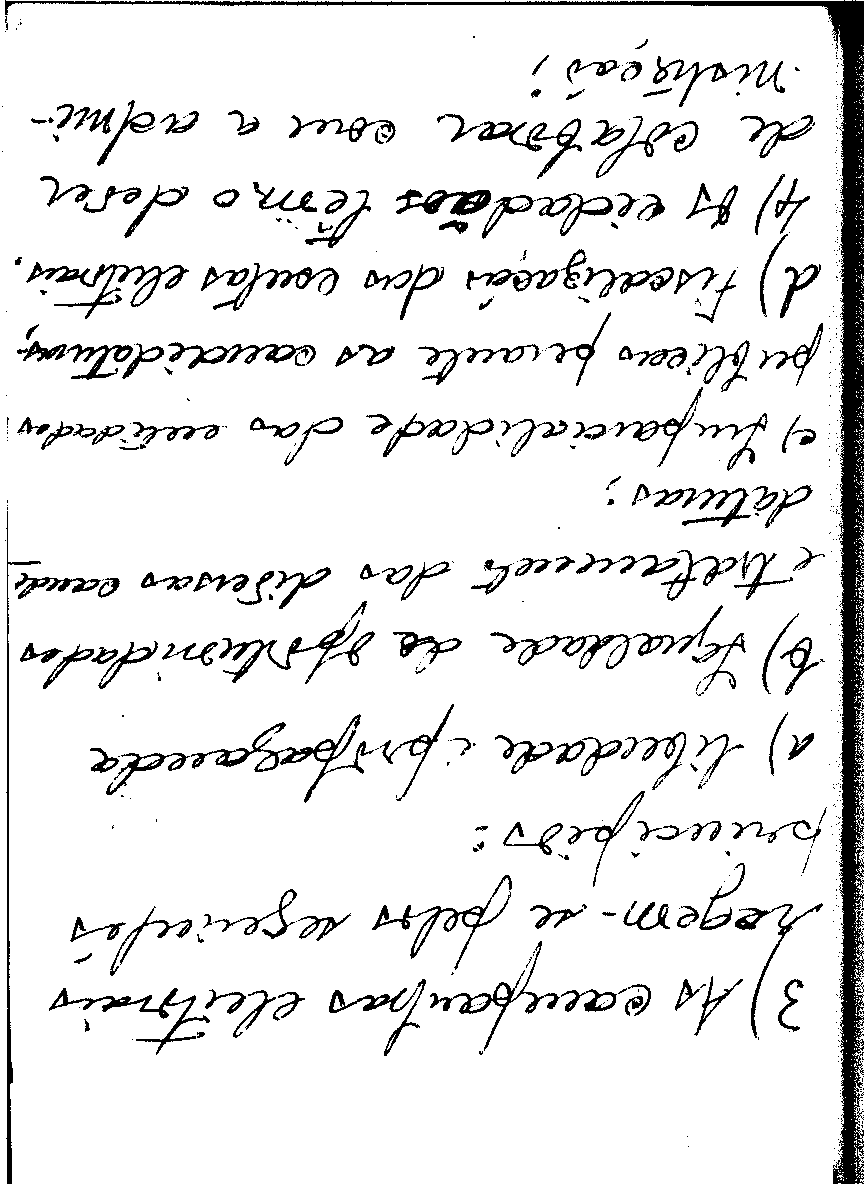 3) As campanhas eleitorais
regem-se pelos seguintes
princípios:
a) liberdade e propaganda
b) Igualdade de oportunidades
e tratamento das diversas candi
daturas;
c) Imparcialidade das entidades
públicas perante as candidaturas;
d) Fiscalização das contas eleitorais.
4) Os cidadãos têm o dever
de colaborar com a admi-
nistração;